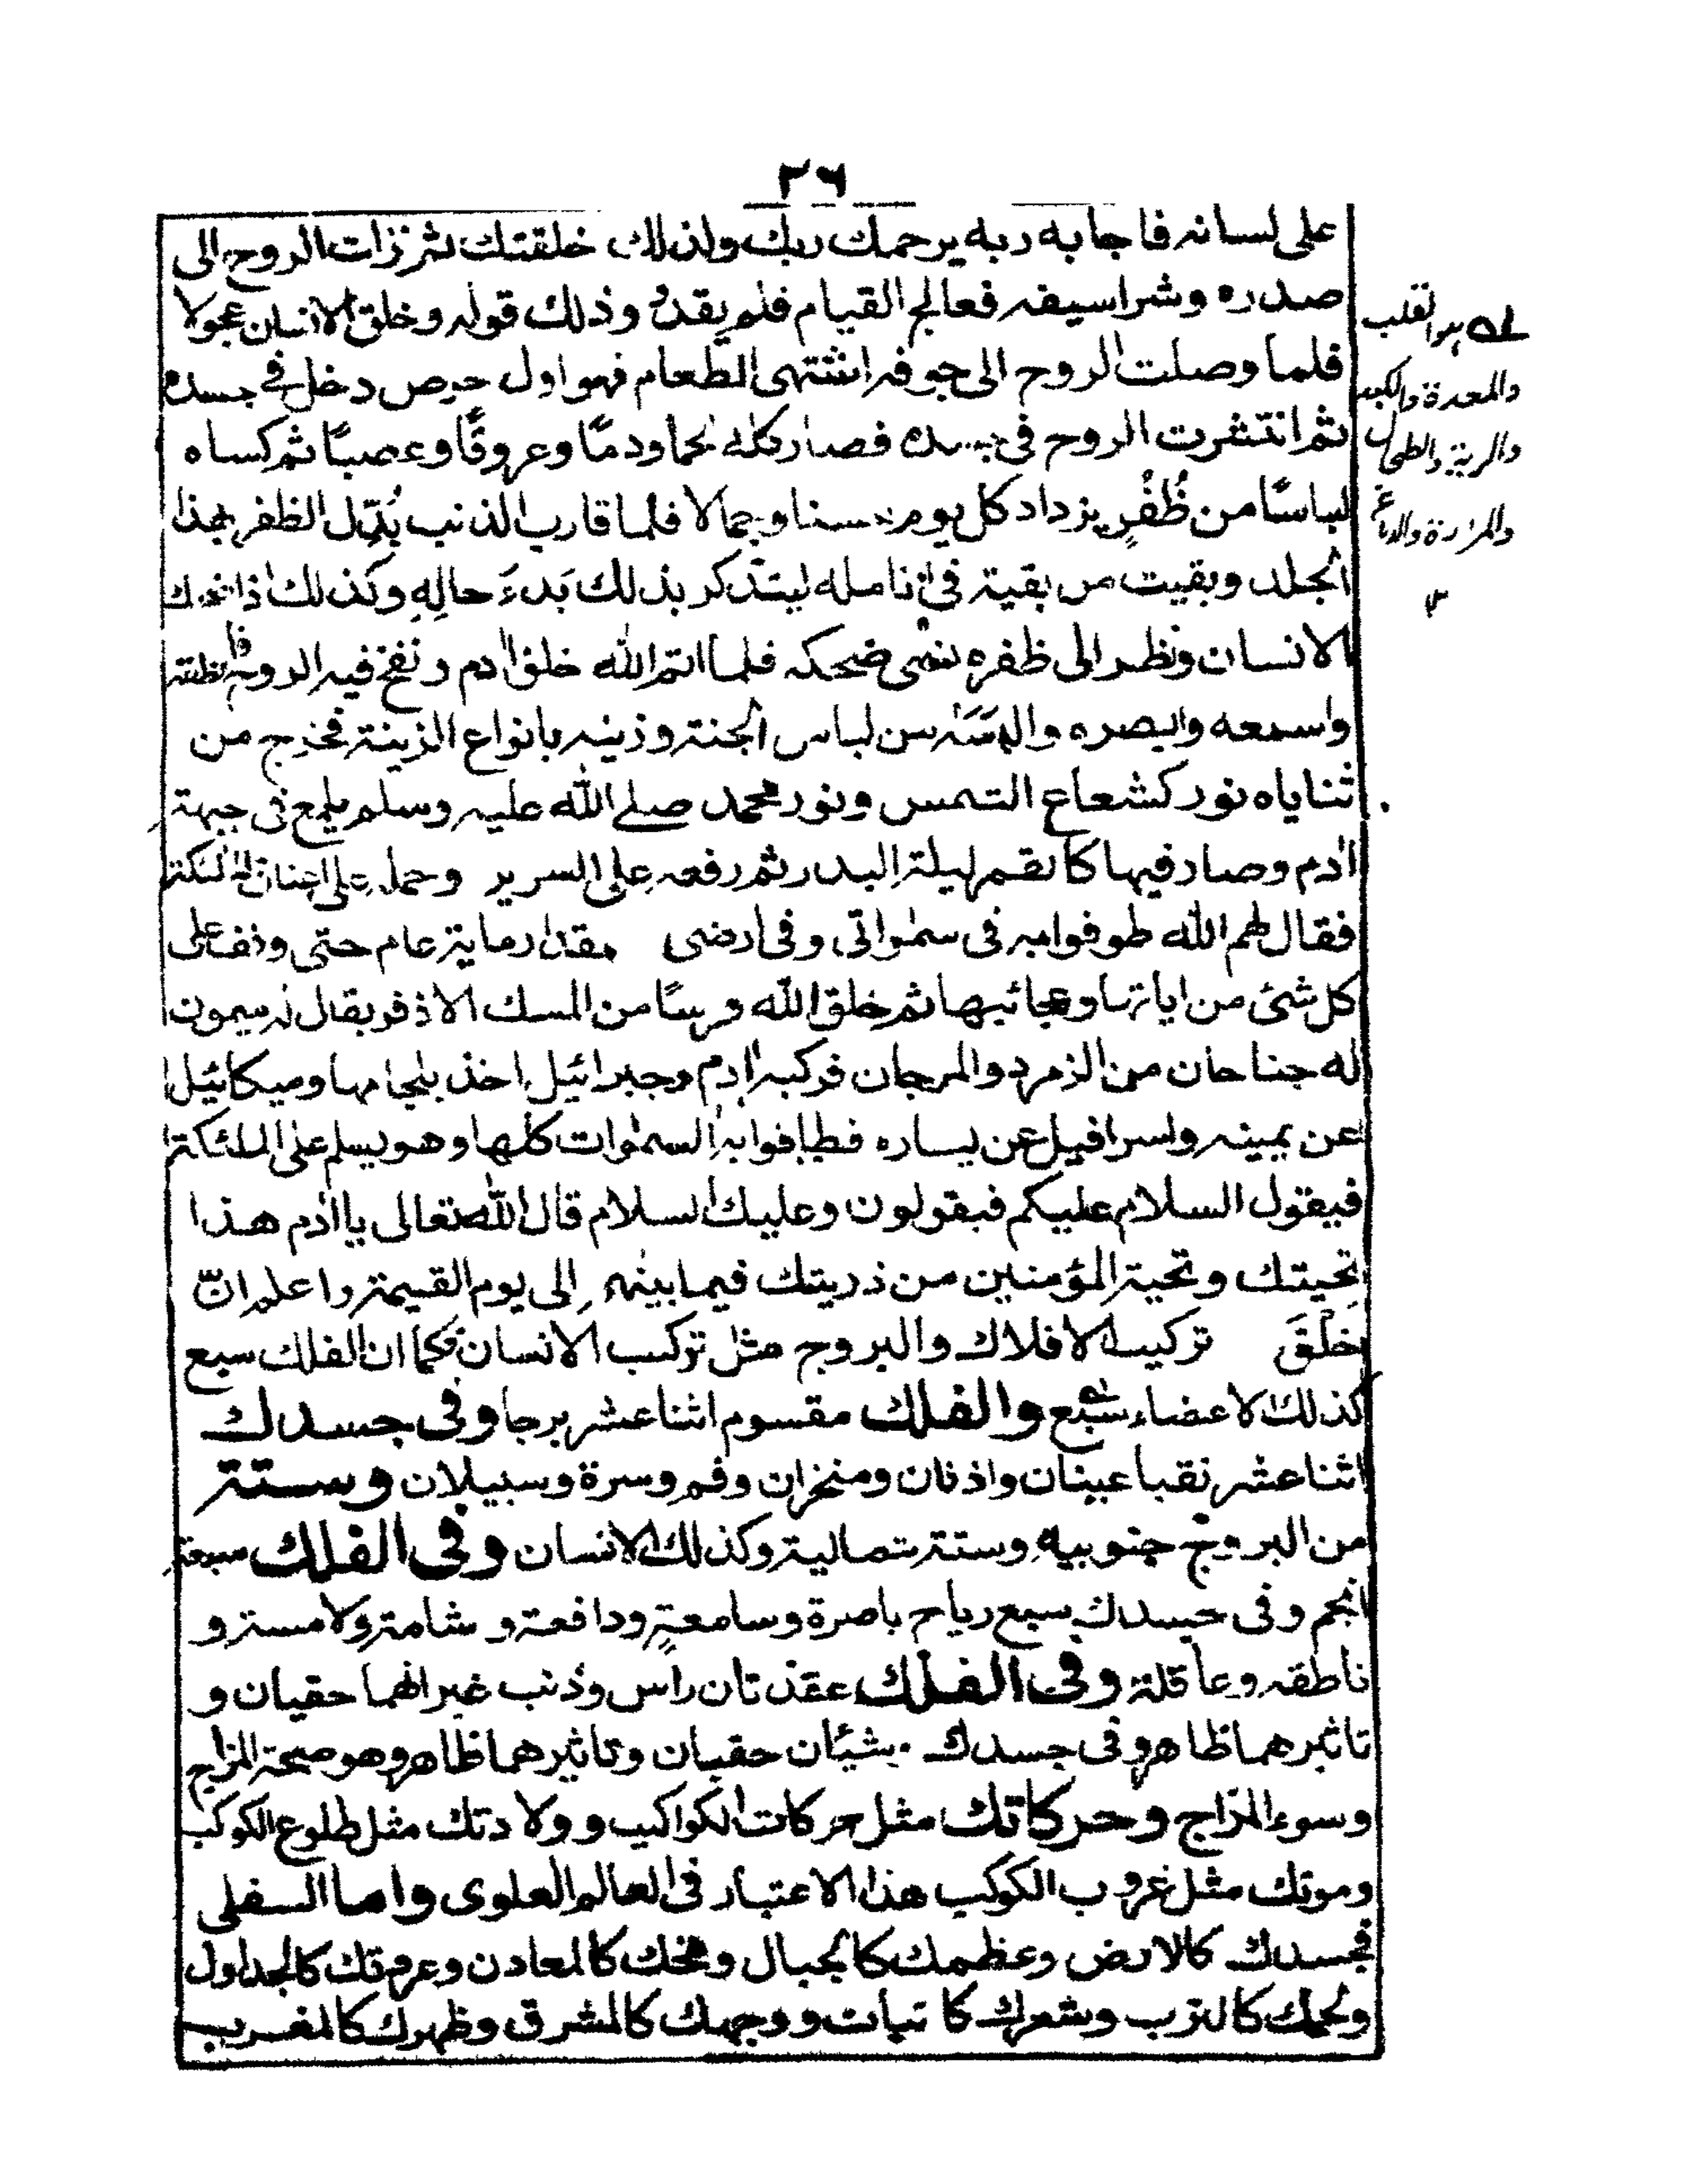 ٢٦
على لسانه فاجابه ربه يرحمك ربك ولذلك خلقتك ثم نزلت الروح الى
صدره وشراسيفه فعالج القيام فلم يقدر وذلك قوله وخلق الانسان عجولا
فلما وصلت الروح الى جوفه اشتهى الطعام فهو اول حرص دخل في جسده
ثم انتشرت الروح في جسده فصار كله لحما ودمًا وعروقًا وعصبًا ثم كساه
لباسًا من ظُفُرٍ يزداد كل يوم حسنا وجمالا فلما قارب الذنب بُدِّل الظفر بهذا
الجلد وبقيت من بقية في انامله ليتذكر بذلك بَدءَ حالِهِ وكذلك اذا ضحك
الانسان ونظر الى ظفره نسى ضحكه فلما اتم الله خلق ادم ونفخ فيه الروح
واسمعه وابصره والبسَهُ من لباس الجنة وزينه بانواع الزينة فخرج من
ثناياه نور كشعاع الشمس ونور محمد صلے الله عليه وسلم يلمع فى جبهة
ادم وصار فيها كالقمر ليلة البدر ثم رفعه على السرير وحمل على اعناق الملئكة
فقال لهم الله طوفوا به فى سمٰواتى وفى ارضى مقدار ماية عام حتى وقف على
كل شئ من اياتها وعجائبها ثم خلق الله فرسًا من المسك الاذفر يقال له ميمون
له جناحان من الزمرد والمرجان فركبه ادم وجبرائيل اخذ بلجامها وميكائيل
عن يمينه واسرافيل عن يساره فطافوا به السمٰوات كلها وهو يسلم على الملئكة
فيقول السلام عليكم فيقولون وعليك السلام قال الله تعالى يا ادم هذا
تحيتك وتحية المؤمنين من ذريتك فيما بينهم الى يوم القيمة واعلم انّ
خَلْقَ تركيب الافلاك والبروج مثل تركيب الانسان فكما ان الفلك سبع
كذلك الاعضاء سبع والفلك مقسوم اثنا عشر برجا وفى جسدك
اثنا عشر نقبا عينان واذنان ومنخران وفم وسرة وسبيلان وستة
من البروج جنوبيه وستة شمالية وكذلك الانسان وفى الفلك سبعة
انجم وفى جسدك سبع رياح باصرة وسامعةٍ ودافعة و شامة ولامسة و
ناطقه وعاقلة وفى الفلك عقدتان راس وذنب غير انهما حقيان و
تاثيرهما ظاهر وفى جسدك شيئان حقيان وتاثيرهما ظاهر وهو صحة المزاج
وسوء المزاج وحركاتك مثل حركات الكواكب وولادتك مثل طلوع الكوكب
وموتك مثل غروب الكوكب هذا الاعتبار فى العالم العلوى واما السفلى
فجسدك كالارض وعظمك كالجبال ومخك كالمعادن وعروقك كالجداول
ولحمك كالترب وشعرك كا نبات ووجهك كالمشرق وظهرك كالمغرب
له هو القلب
والمعدة والكبد
والرية والطحال
والمرارة والدماغ